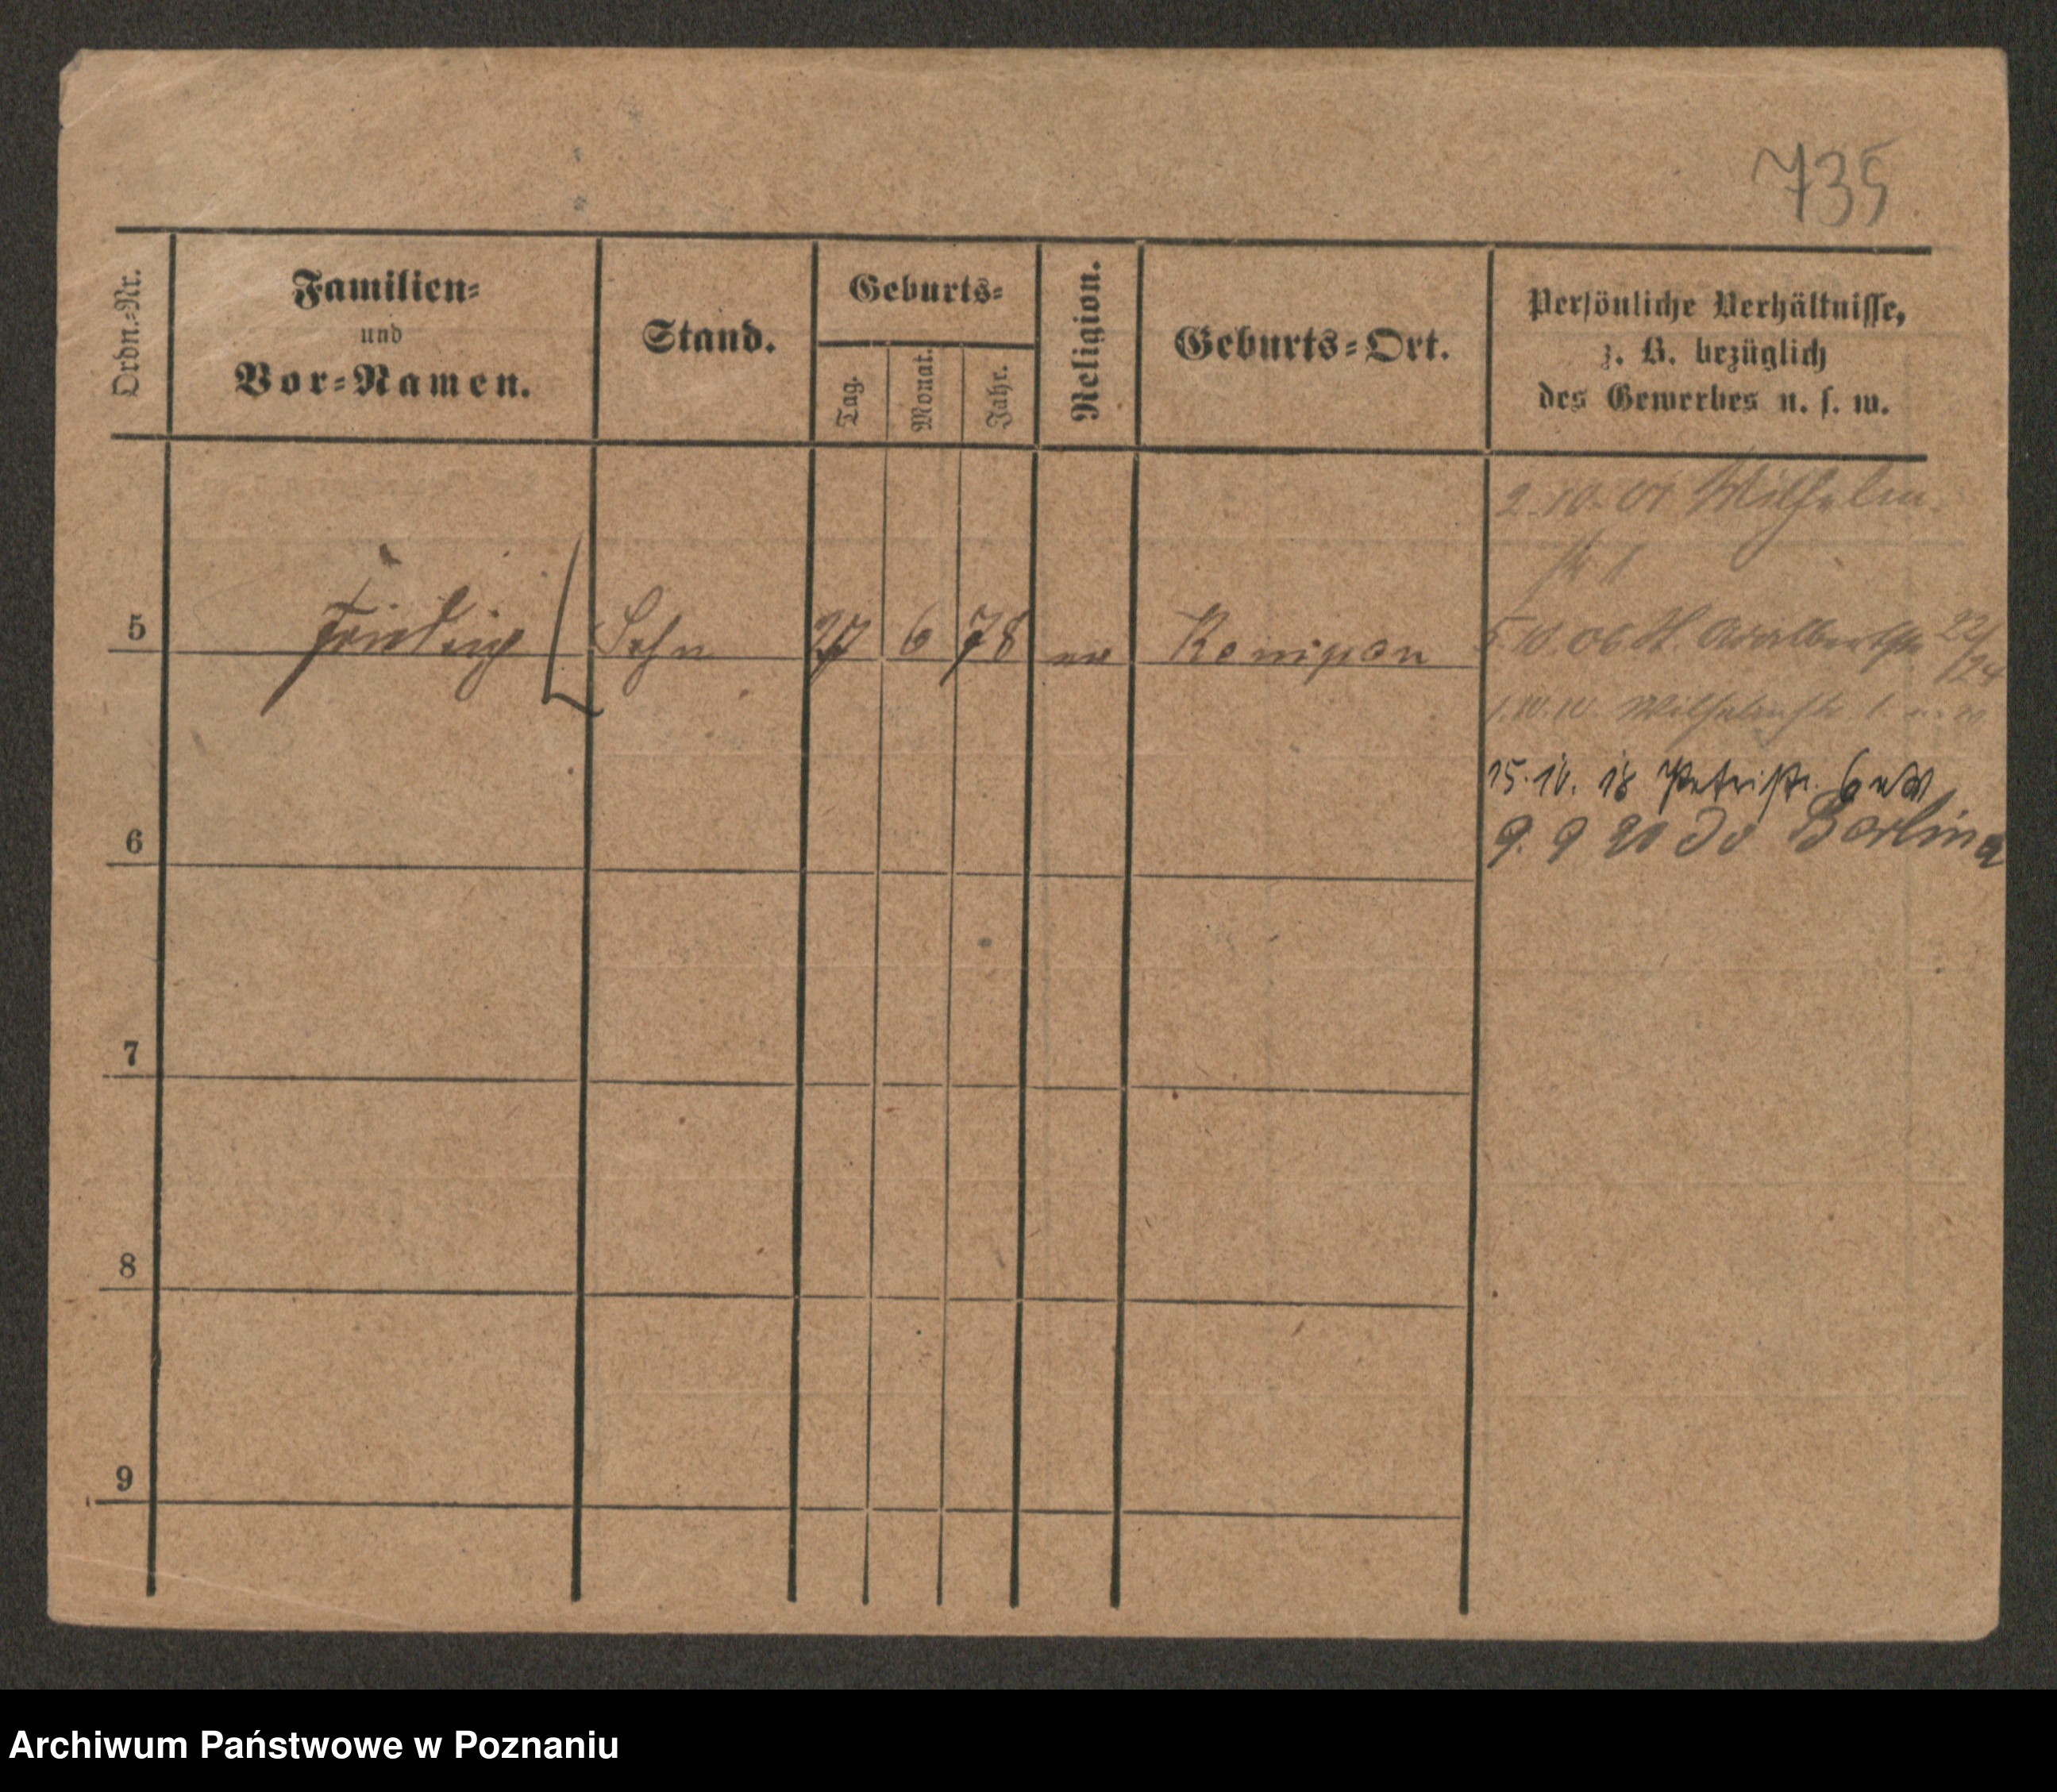 735
Ordn.-Nr.
Familien-
und
Vor-Namen.
Stand.
Geburts-
Tag.
Monat.
Jahr.
Religion.
Geburts-Ort.
Persönliche Verhältnisse,
z. B. bezüglich
des Gewerbes u. s. w.
2.10.01 Wilhelm
str 1
5 Sohn 27 6 78 ev
5.10.06 Adalbertstr 22/24
1.10.10. Wilhelmstr. 1
15.10.18 Petristr. 6
6
9. 9 20 Berlin
7
8
9
Archiwum Państwowe w Poznaniu